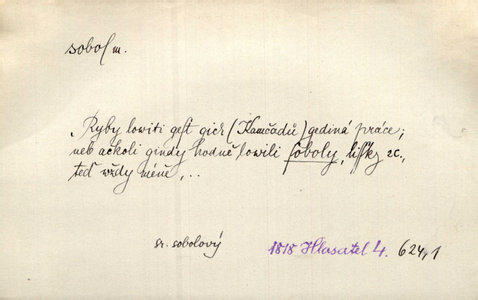 sobol m.
„Ryby lowiti gest gich (Kamčadů) gediná práce;
neb ačkoli gindy hodně lowili soboly, lišky ꝛc.,
teď wždy méně, ..
sr. sobolový
1818 Hlasatel 4. 624,1